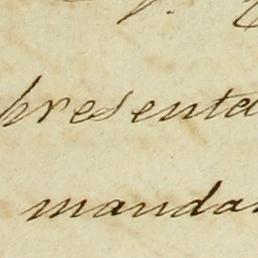 presenta
manda